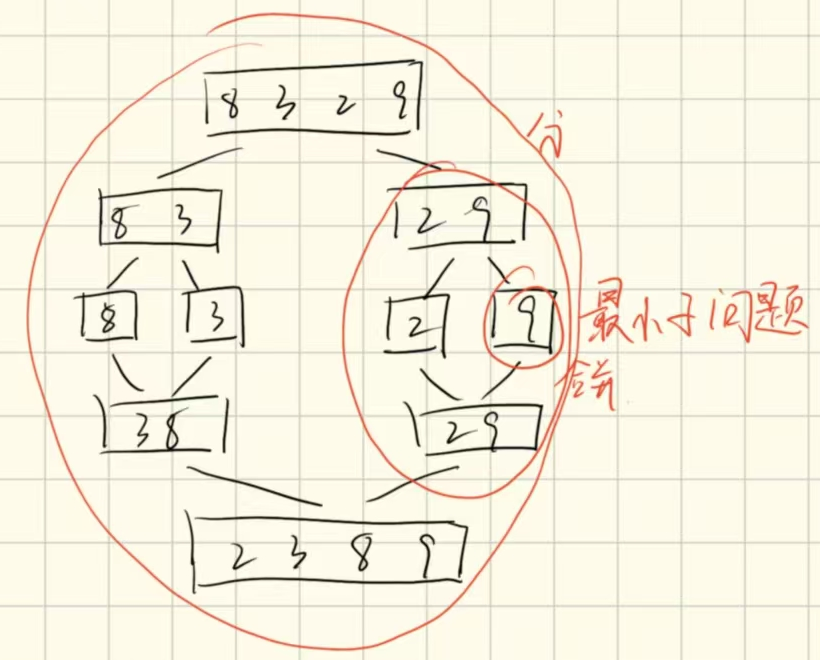 8 3 2 9
分
8 3
2 9
8
3
2
9
最小子问题
合并
3 8
2 9
2 3 8 9